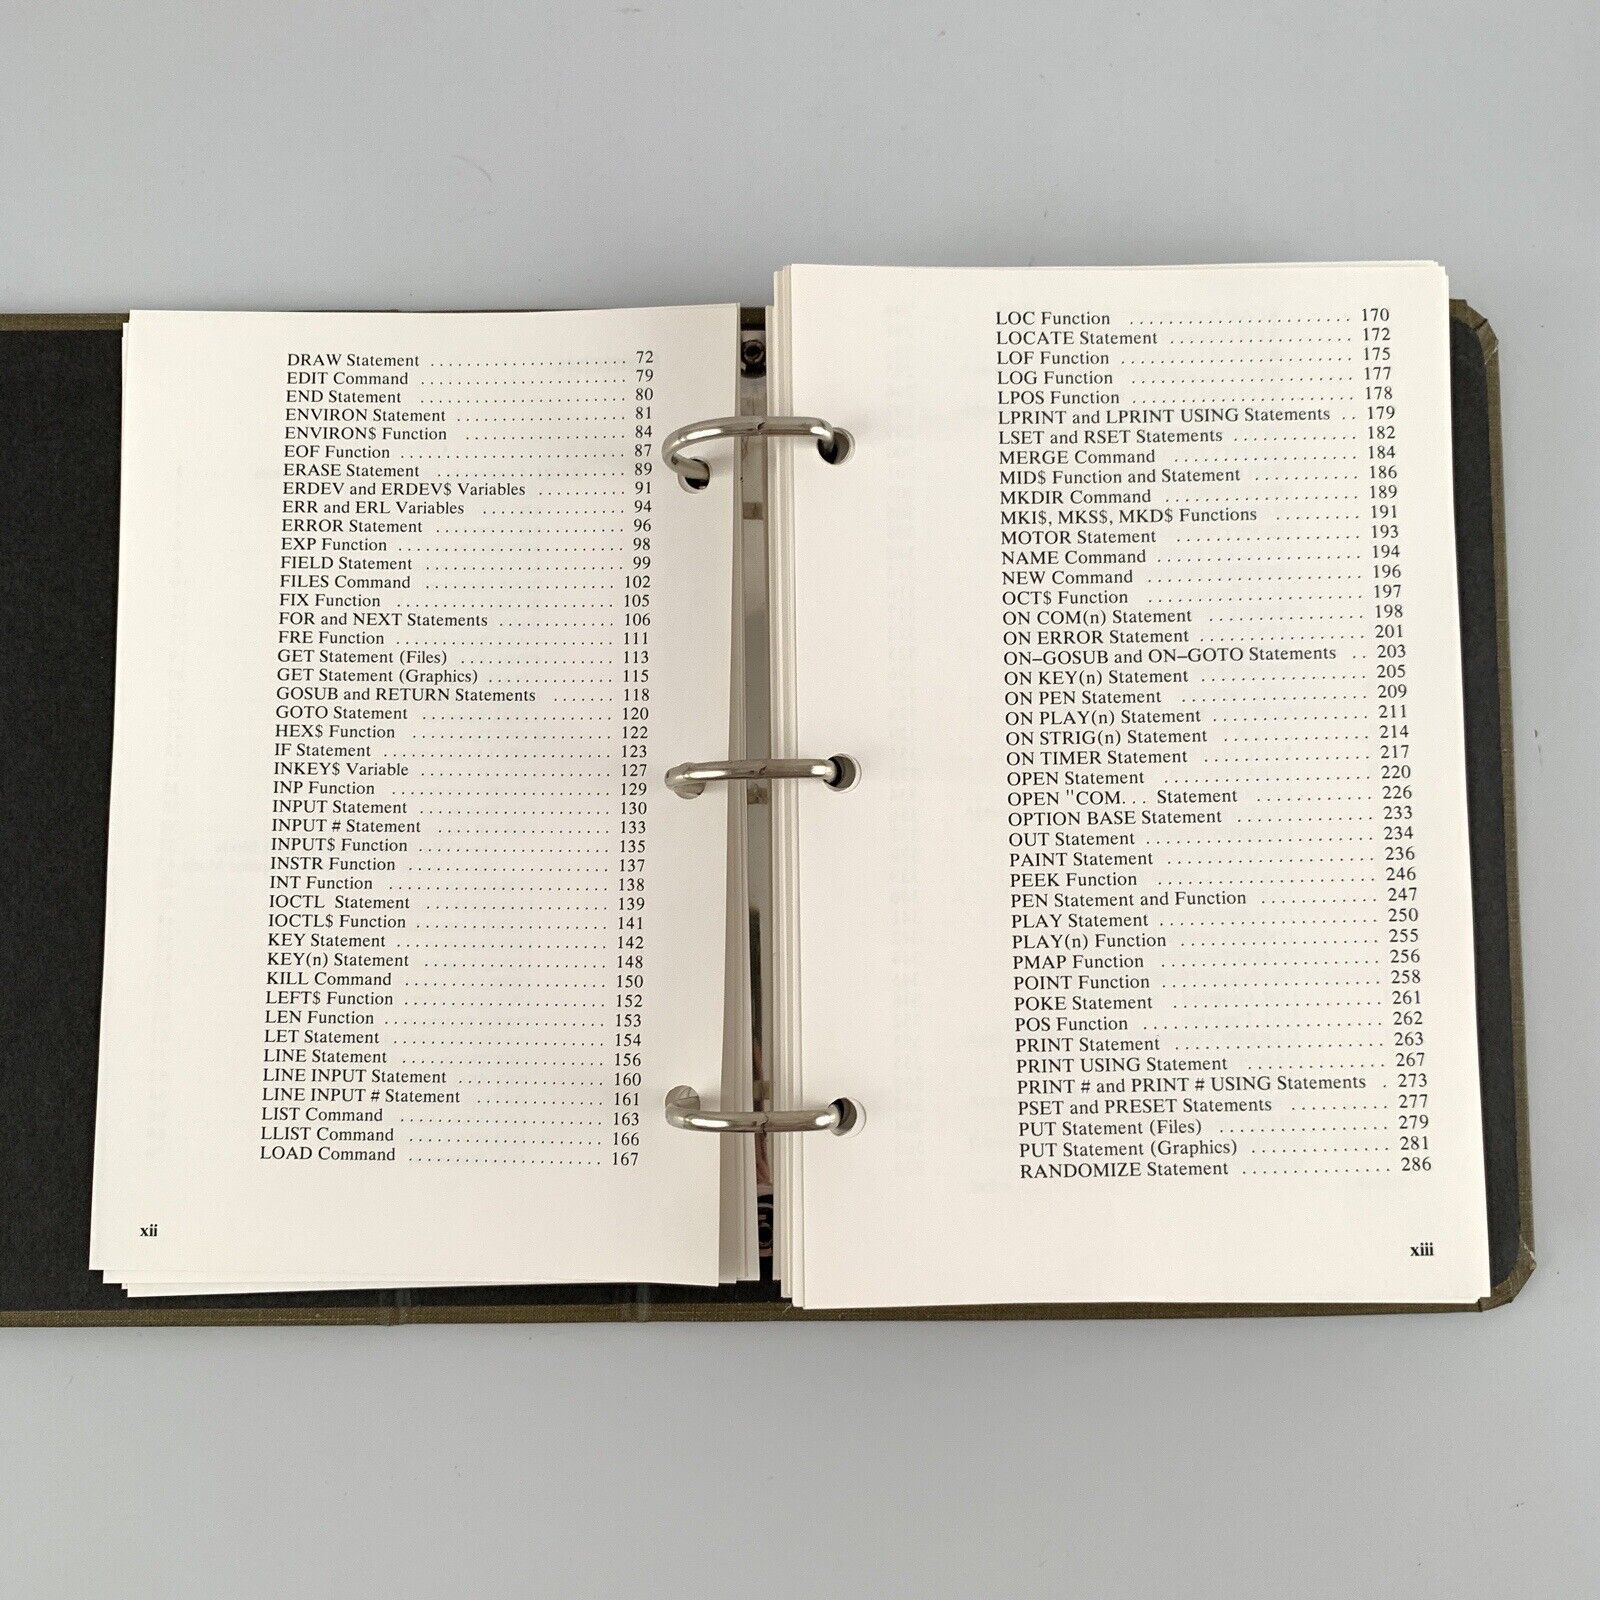 DRAW Statement . . . . . . . . . . . . . . . . . . . . . 72
EDIT Command . . . . . . . . . . . . . . . . . . . . . . 79
END Statement . . . . . . . . . . . . . . . . . . . . . . 80
ENVIRON Statement . . . . . . . . . . . . . . . . . . 81
ENVIRON$ Function . . . . . . . . . . . . . . . . . 84
EOF Function . . . . . . . . . . . . . . . . . . . . . . . 87
ERASE Statement . . . . . . . . . . . . . . . . . . . . 89
ERDEV and ERDEV$ Variables . . . . . . . . . . 91
ERR and ERL Variables . . . . . . . . . . . . . . . 94
ERROR Statement . . . . . . . . . . . . . . . . . . . . 96
EXP Function . . . . . . . . . . . . . . . . . . . . . . . 98
FIELD Statement . . . . . . . . . . . . . . . . . . . . . 99
FILES Command . . . . . . . . . . . . . . . . . . . . 102
FIX Function . . . . . . . . . . . . . . . . . . . . . . . 105
FOR and NEXT Statements . . . . . . . . . . . . . 106
FRE Function . . . . . . . . . . . . . . . . . . . . . . . 111
GET Statement (Files) . . . . . . . . . . . . . . . . 113
GET Statement (Graphics) . . . . . . . . . . . . . 115
GOSUB and RETURN Statements . . . . . . . 118
GOTO Statement . . . . . . . . . . . . . . . . . . . . 120
HEX$ Function . . . . . . . . . . . . . . . . . . . . . 122
IF Statement . . . . . . . . . . . . . . . . . . . . . . . 123
INKEY$ Variable . . . . . . . . . . . . . . . . . . . . 127
INP Function . . . . . . . . . . . . . . . . . . . . . . . 129
INPUT Statement . . . . . . . . . . . . . . . . . . . . 130
INPUT # Statement . . . . . . . . . . . . . . . . . . 133
INPUT$ Function . . . . . . . . . . . . . . . . . . . . 135
INSTR Function . . . . . . . . . . . . . . . . . . . . . 137
INT Function . . . . . . . . . . . . . . . . . . . . . . . 138
IOCTL Statement . . . . . . . . . . . . . . . . . . . 139
IOCTL$ Function . . . . . . . . . . . . . . . . . . . . 141
KEY Statement . . . . . . . . . . . . . . . . . . . . . . 142
KEY(n) Statement . . . . . . . . . . . . . . . . . . . 148
KILL Command . . . . . . . . . . . . . . . . . . . . . 150
LEFT$ Function . . . . . . . . . . . . . . . . . . . . . 152
LEN Function . . . . . . . . . . . . . . . . . . . . . . . 153
LET Statement . . . . . . . . . . . . . . . . . . . . . . 154
LINE Statement . . . . . . . . . . . . . . . . . . . . . 156
LINE INPUT Statement . . . . . . . . . . . . . . . 160
LINE INPUT # Statement . . . . . . . . . . . . . . 161
LIST Command . . . . . . . . . . . . . . . . . . . . . 163
LLIST Command . . . . . . . . . . . . . . . . . . . . 166
LOAD Command . . . . . . . . . . . . . . . . . . . . 167
xii
LOC Function . . . . . . . . . . . . . . . . . . . . . . . 170
LOCATE Statement . . . . . . . . . . . . . . . . . . . 172
LOF Function . . . . . . . . . . . . . . . . . . . . . . . 175
LOG Function . . . . . . . . . . . . . . . . . . . . . . . 177
LPOS Function . . . . . . . . . . . . . . . . . . . . . . 178
LPRINT and LPRINT USING Statements . . 179
LSET and RSET Statements . . . . . . . . . . . . . 182
MERGE Command . . . . . . . . . . . . . . . . . . . 184
MID$ Function and Statement . . . . . . . . . . . 186
MKDIR Command . . . . . . . . . . . . . . . . . . . . 189
MKI$, MKS$, MKD$ Functions . . . . . . . . . 191
MOTOR Statement . . . . . . . . . . . . . . . . . . . 193
NAME Command . . . . . . . . . . . . . . . . . . . . 194
NEW Command . . . . . . . . . . . . . . . . . . . . . 196
OCT$ Function . . . . . . . . . . . . . . . . . . . . . . 197
ON COM(n) Statement . . . . . . . . . . . . . . . . 198
ON ERROR Statement . . . . . . . . . . . . . . . . . 201
ON–GOSUB and ON–GOTO Statements . . 203
ON KEY(n) Statement . . . . . . . . . . . . . . . . . 205
ON PEN Statement . . . . . . . . . . . . . . . . . . . 209
ON PLAY(n) Statement . . . . . . . . . . . . . . . . 211
ON STRIG(n) Statement . . . . . . . . . . . . . . . 214
ON TIMER Statement . . . . . . . . . . . . . . . . . 217
OPEN Statement . . . . . . . . . . . . . . . . . . . . . 220
OPEN "COM. . . Statement . . . . . . . . . . . . 226
OPTION BASE Statement . . . . . . . . . . . . . . 233
OUT Statement . . . . . . . . . . . . . . . . . . . . . . 234
PAINT Statement . . . . . . . . . . . . . . . . . . . . . 236
PEEK Function . . . . . . . . . . . . . . . . . . . . . . 246
PEN Statement and Function . . . . . . . . . . . . 247
PLAY Statement . . . . . . . . . . . . . . . . . . . . . 250
PLAY(n) Function . . . . . . . . . . . . . . . . . . . . 255
PMAP Function . . . . . . . . . . . . . . . . . . . . . . 256
POINT Function . . . . . . . . . . . . . . . . . . . . . 258
POKE Statement . . . . . . . . . . . . . . . . . . . . . 261
POS Function . . . . . . . . . . . . . . . . . . . . . . . 262
PRINT Statement . . . . . . . . . . . . . . . . . . . . . 263
PRINT USING Statement . . . . . . . . . . . . . . 267
PRINT # and PRINT # USING Statements . 273
PSET and PRESET Statements . . . . . . . . . . 277
PUT Statement (Files) . . . . . . . . . . . . . . . . . 279
PUT Statement (Graphics) . . . . . . . . . . . . . . 281
RANDOMIZE Statement . . . . . . . . . . . . . . . 286
xiii